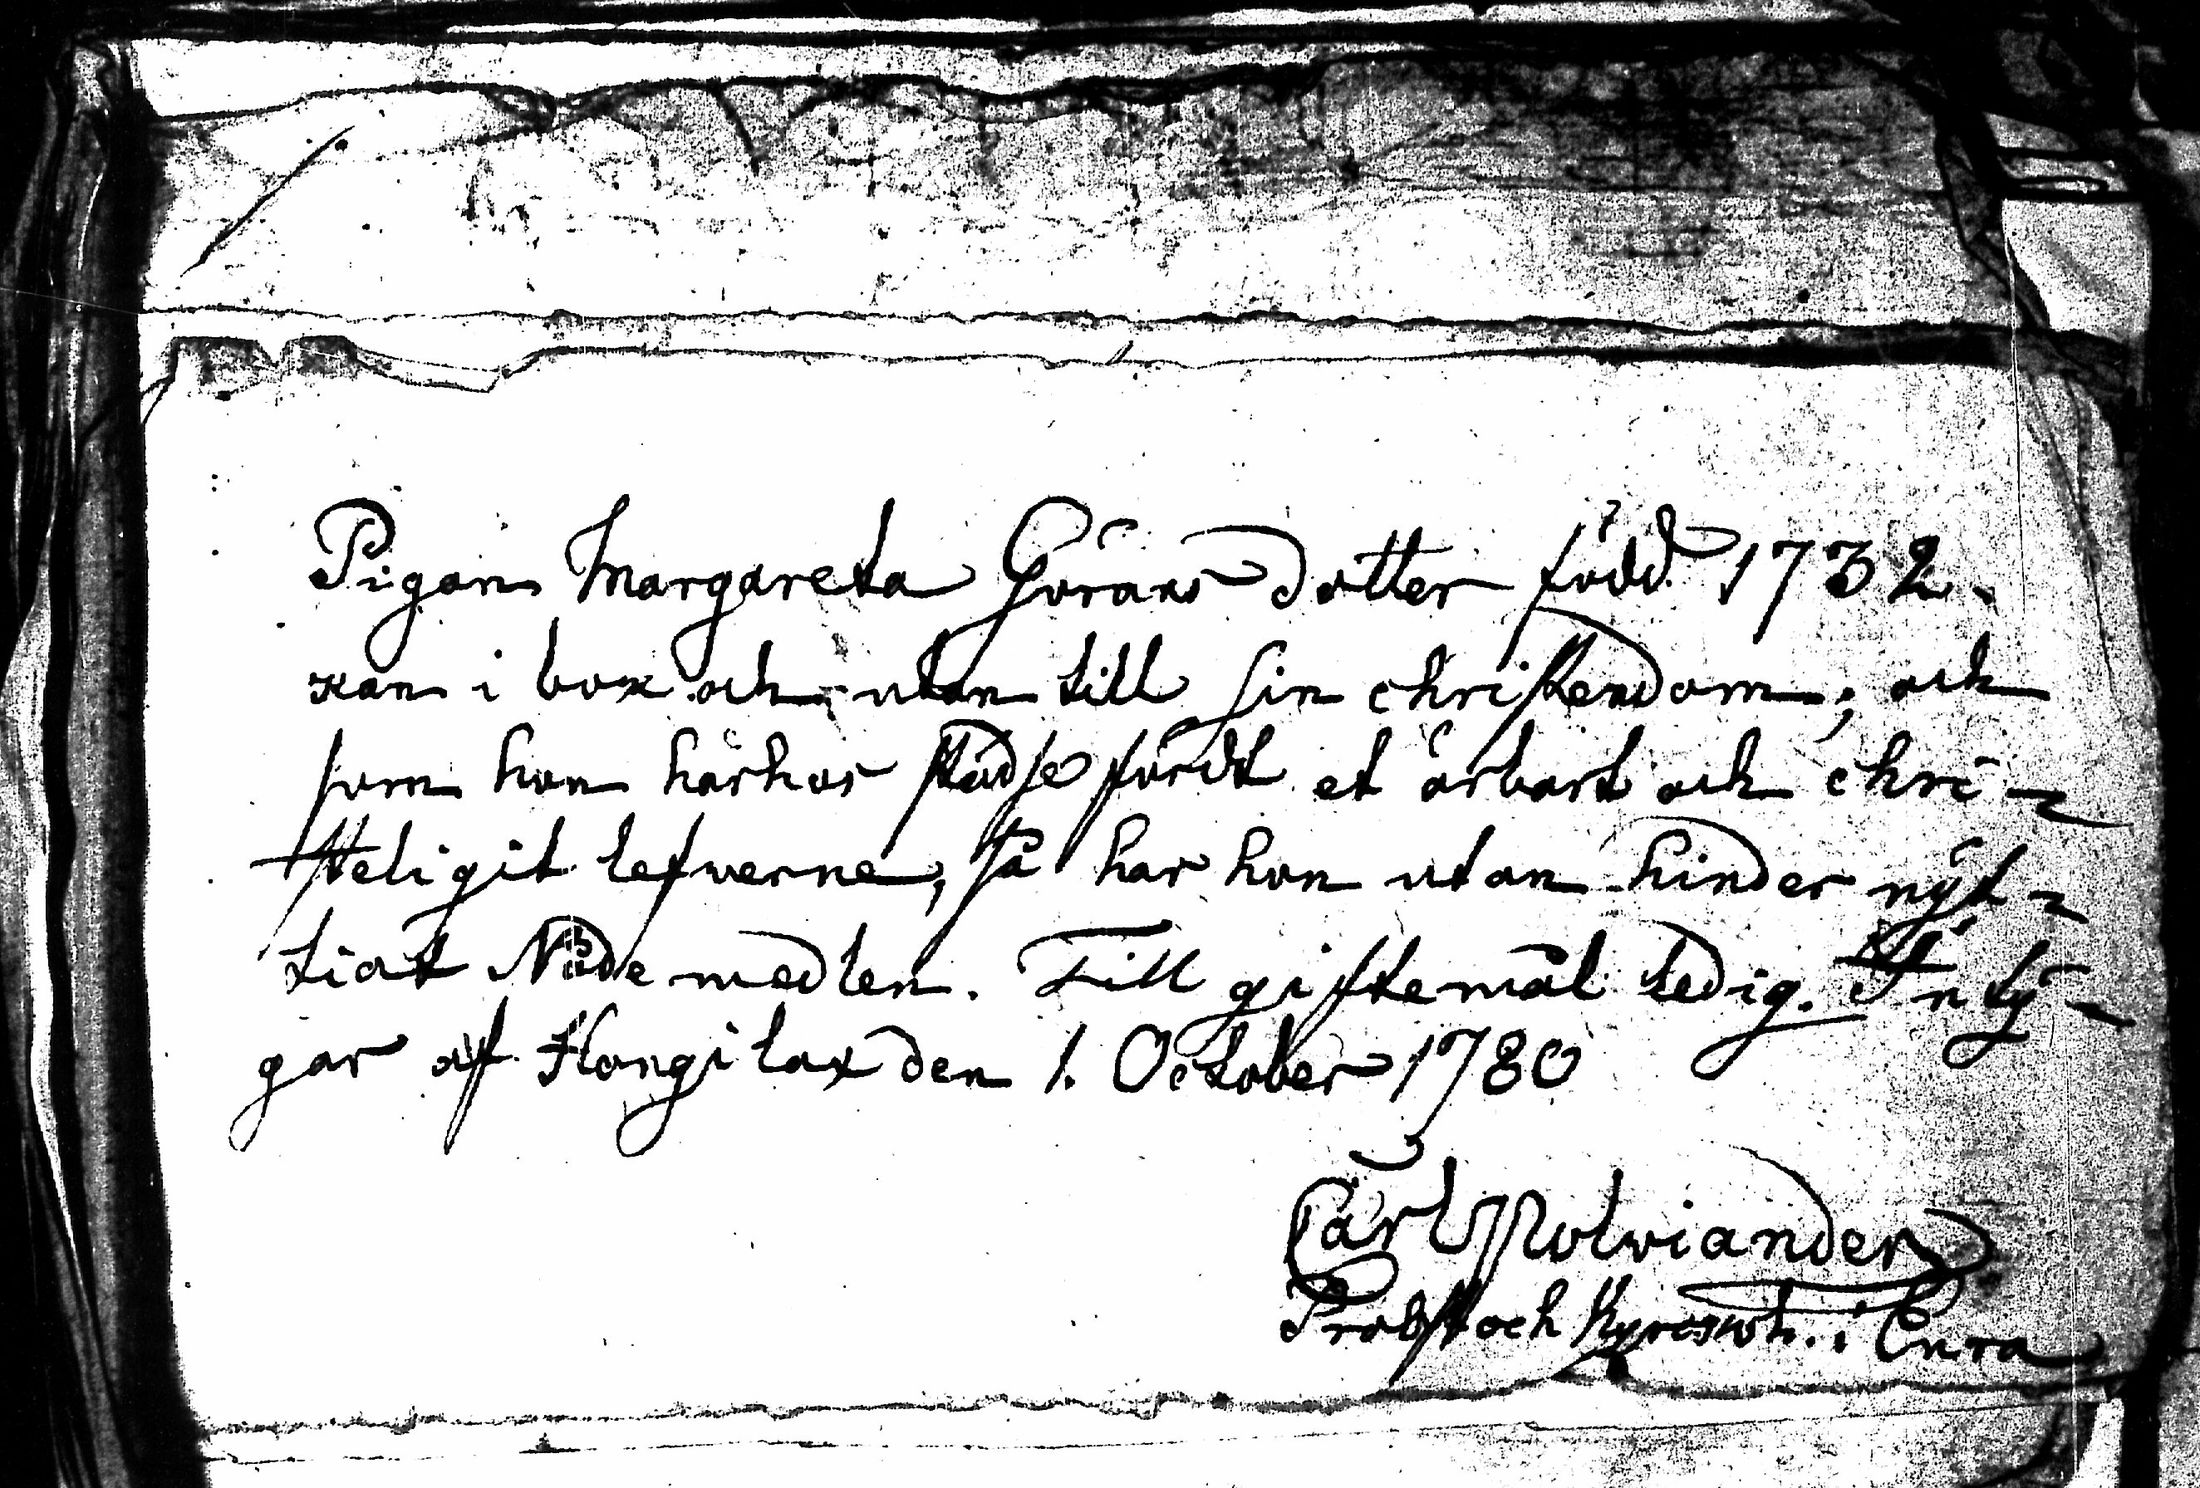 Pigan Margareta Görans dotter född 1732.
kan i bok och utan till sin christendom; och
som hon härhos städse fördt et ärbart och chri-
steligit lefwerne, så har hon utan hinder nytt-
tiat Nåde medlen. Till giftemål ledig. Inty-
gar af Kangilax den 1. October 1780
Carl Polviander
Probst och Kyrcowh. i Eura